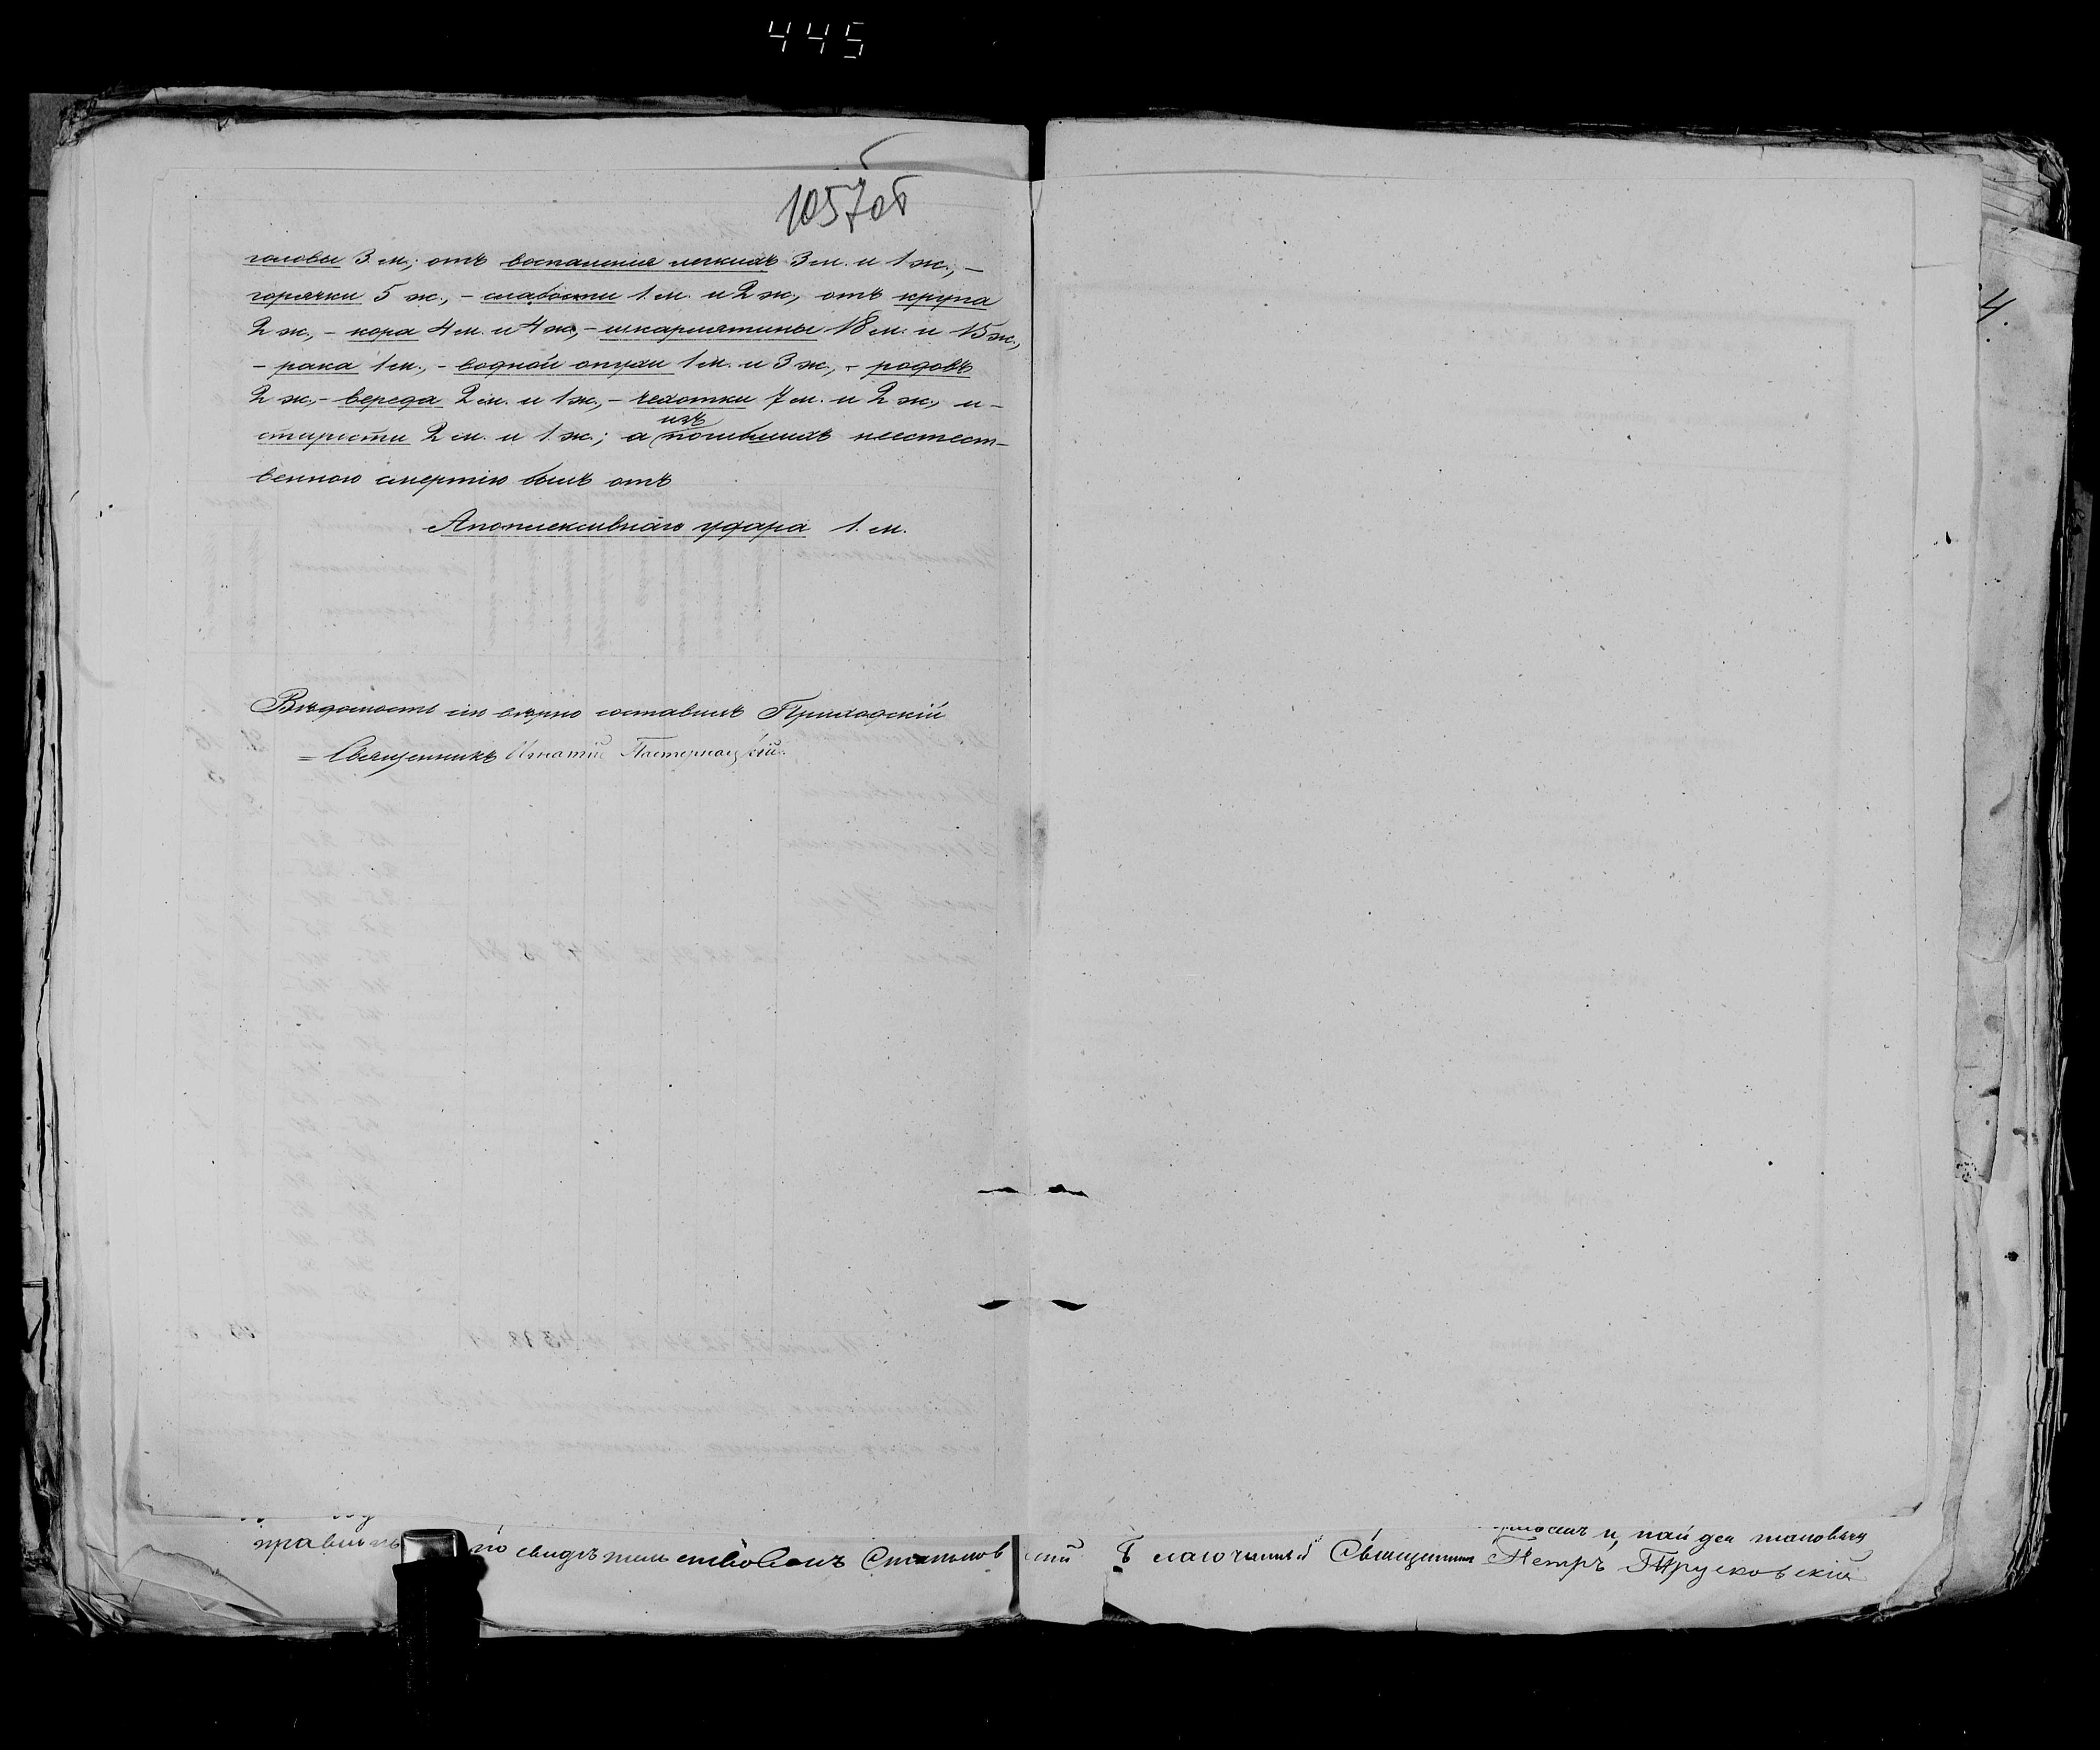 445
1057об
головы 3 м; отъ воспаленія легкихъ 3 м. и 1 ж., –
горячки 5 ж., – слабости 1 м. и 2 ж., отъ крупа
2 ж., – кора 4 м. и 4 ж., – шкарлятины 18 м. и 15 ж.,
– рака 1 м., – водной опухи 1 м. и 3 ж., – родовъ
2 ж., – вереда 2 м. и 1 ж., – чехотки 7 м. и 2 ж., и –
старости 2 м. и 1 ж.; а изъ погибшихъ неестест-
венною смертію былъ отъ
Апоплексивнаго удара 1. м.
Вѣдомость сію вѣрно составилъ Приходскій
= Священникъ Игнатій Пастернацкій
4.
и, найдя таковыя
правильн по свидѣтельствовалъ Благочинный Священникъ Петръ Трусковскій